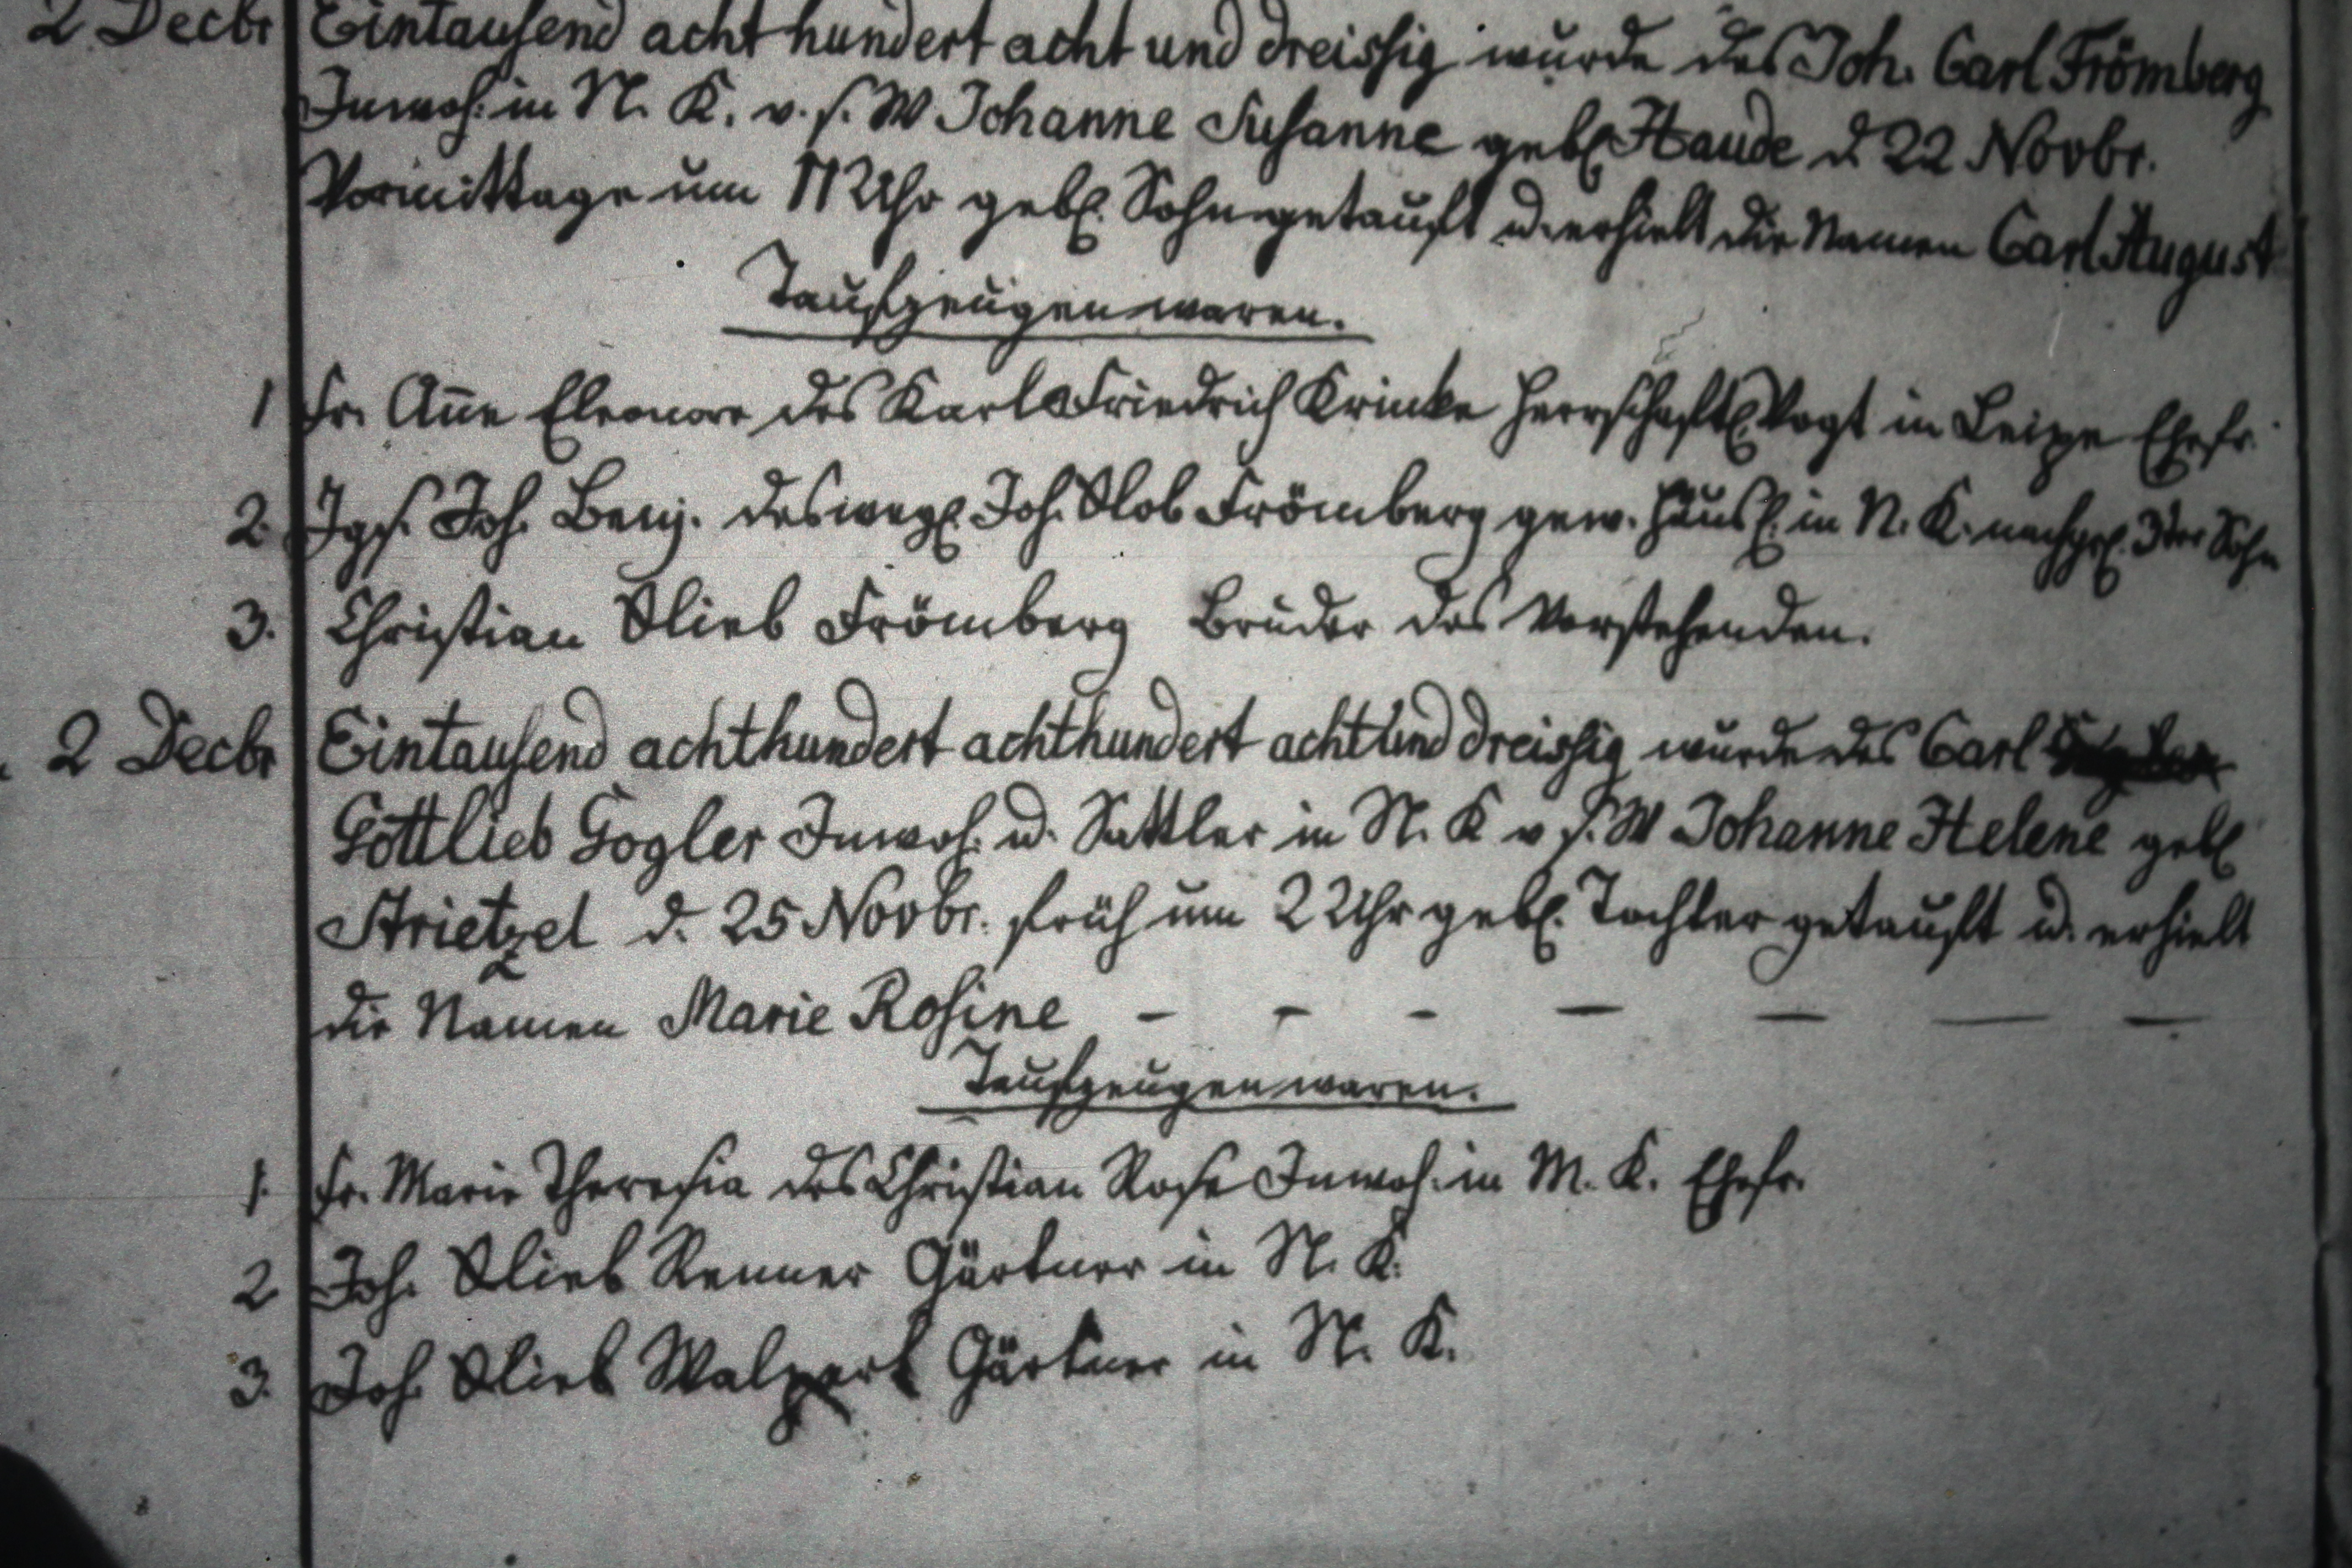 2 Decbr Eintausend acht hundert acht und dreissig wurde des Joh. Carl Frömberg
Inwoh. in N. K. v. s. W Johanne Susanne geb. Haude d 22 Novbr.
Vormittage um 11 Uhr geb. Sohn getauft u. erhielt die Namen Carl August
Taufzeugen waren.
1 Fr. Añe Eleonore des Karl Friedrich Krinke Herrschaftl. Vogt in Leipe Ehefr.
2. Jgs. Joh. Benj. des weyl. Joh. Glob Frömberg gew. Häusl. in N. K. nachgel. 3ter Sohn
3. Christian Glieb Frömberg Bruder des Vorstehenden.
2 Decbr Eintausend achthundert achthundert acht und dreissig wurde des Carl
Gottlieb Gogler Inwoh. u. Sattler in N. K v s. W Johanne Helene geb.
Strietzel d. 25 Novbr. früh um 2 Uhr geb. Tochter getauft u. erhielt
die Namen Marie Rosine - - - - - - -
Taufzeugen waren.
1. Fr. Marie Theresia des Christian Rose Inwoh. in M. K. Ehefr.
2 Joh. Glieb Renner Gärtner in N. K.
3. Joh. Glieb Walpert Gärtner in N. K.